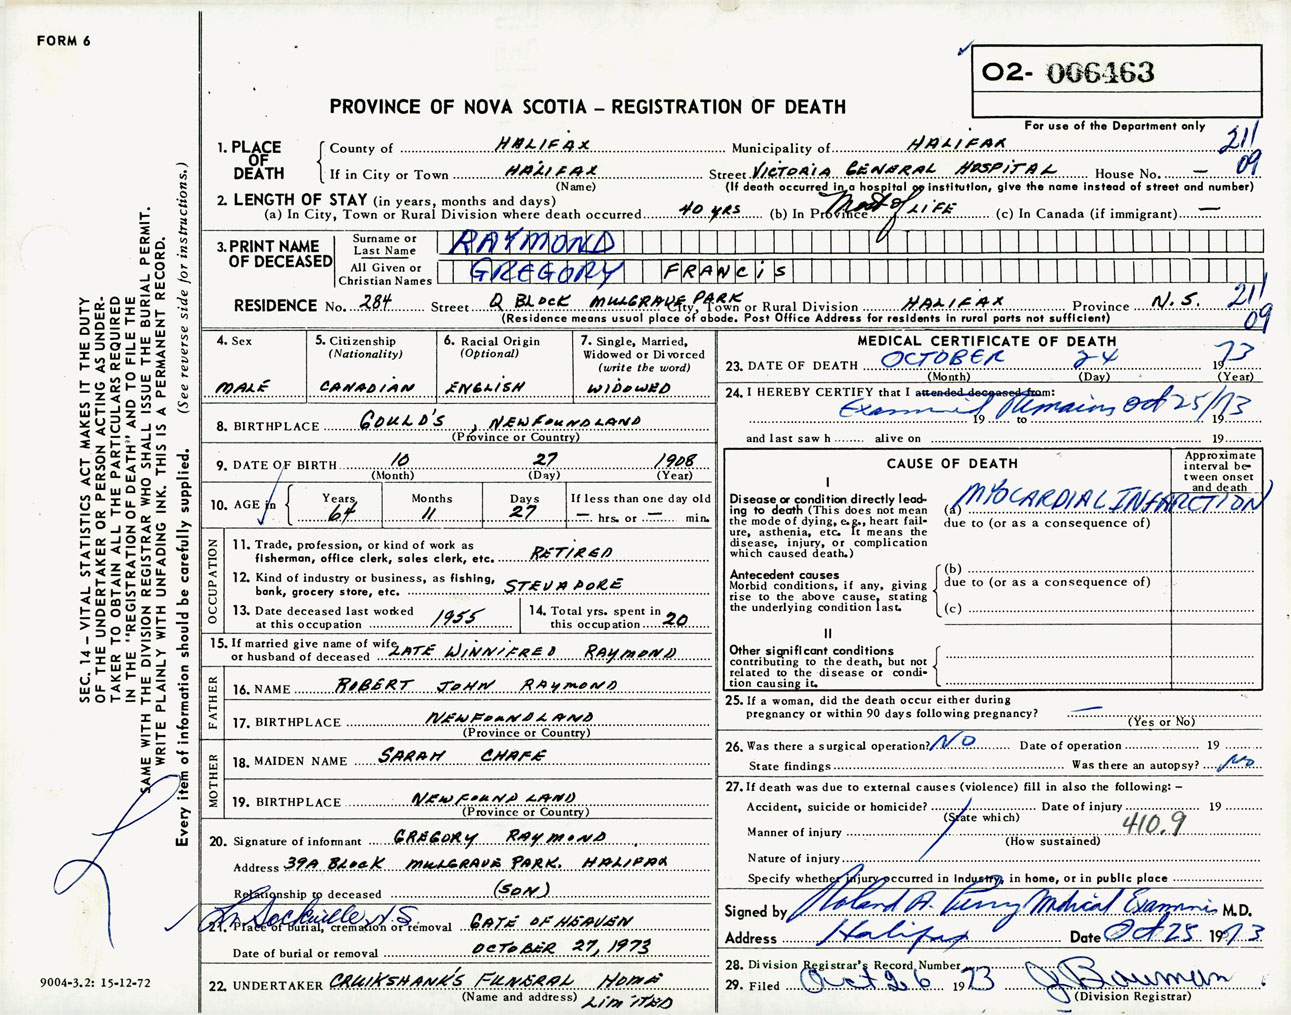 FORM 6
O2- 006463
PROVINCE OF NOVA SCOTIA – REGISTRATION OF DEATH
For use of the Department only
1. PLACE OF DEATH
County of HALIFAX Municipality of HALIFAX 211
If in City or Town HALIFAX Street VICTORIA GENERAL HOSPITAL House No. — 09
(Name) (If death occurred in a hospital or institution, give the name instead of street and number)
2. LENGTH OF STAY (in years, months and days)
(a) In City, Town or Rural Division where death occurred 40 YRS (b) In Province Most of LIFE (c) In Canada (if immigrant) —
3. PRINT NAME OF DECEASED
Surname or Last Name RAYMOND
All Given or Christian Names GREGORY FRANCIS
RESIDENCE No. 284 Street Q BLOCK MULGRAVE PARK City, Town or Rural Division HALIFAX Province N.S. 211
(Residence means usual place of abode. Post Office Address for residents in rural parts not sufficient) 09
4. Sex
MALE
5. Citizenship
(Nationality)
CANADIAN
6. Racial Origin
(Optional)
ENGLISH
7. Single, Married,
Widowed or Divorced
(write the word)
WIDOWED
8. BIRTHPLACE GOULD'S, NEWFOUNDLAND
(Province or Country)
9. DATE OF BIRTH 10 27 1908
(Month) (Day) (Year)
10. AGE in
Years Months Days If less than one day old
64 11 27 — hrs. or — min.
OCCUPATION
11. Trade, profession, or kind of work as
fisherman, office clerk, sales clerk, etc. RETIRED
12. Kind of industry or business, as fishing,
bank, grocery store, etc. STEVADORE
13. Date deceased last worked
at this occupation 1955
14. Total yrs. spent in
this occupation 20
15. If married give name of wife
or husband of deceased LATE WINNIFRED RAYMOND
FATHER
16. NAME ROBERT JOHN RAYMOND
17. BIRTHPLACE NEWFOUNDLAND
(Province or Country)
MOTHER
18. MAIDEN NAME SARAH CHAFE
19. BIRTHPLACE NEWFOUNDLAND
(Province or Country)
20. Signature of informant GREGORY RAYMOND
Address 39A BLOCK MULGRAVE PARK. HALIFAX
Relationship to deceased (SON)
Lr Sackville N.S.
21. Place of burial, cremation or removal GATE OF HEAVEN
Date of burial or removal OCTOBER 27, 1973
22. UNDERTAKER CRUIKSHANK'S FUNERAL HOME
(Name and address) LIMITED
MEDICAL CERTIFICATE OF DEATH
23. DATE OF DEATH OCTOBER 24 1973
(Month) (Day) (Year)
24. I HEREBY CERTIFY that I attended deceased from:
Examined Remains Oct 25/73
19 to 19
and last saw h alive on 19
CAUSE OF DEATH
Approximate
interval be-
tween onset
and death
I
Disease or condition directly lead-
ing to death (This does not mean
the mode of dying, e.g., heart fail-
ure, asthenia, etc. It means the
disease, injury, or complication
which caused death.)
(a) MYOCARDIAL INFARCTION
due to (or as a consequence of)
Antecedent causes
Morbid conditions, if any, giving
rise to the above cause, stating
the underlying condition last.
(b)
due to (or as a consequence of)
(c)
II
Other significant conditions
contributing to the death, but not
related to the disease or condi-
tion causing it.
25. If a woman, did the death occur either during
pregnancy or within 90 days following pregnancy? —
(Yes or No)
26. Was there a surgical operation? NO Date of operation 19
State findings Was there an autopsy? No
27. If death was due to external causes (violence) fill in also the following: –
Accident, suicide or homicide? Date of injury 19
(State which)
410.9
Manner of injury
(How sustained)
Nature of injury
Specify whether injury occurred in Industry, in home, or in public place
Signed by Roland A. Perry Medical Examiner M.D.
Address Halifax Date Oct 25 1973
28. Division Registrar's Record Number
29. Filed Oct 26 1973 J Bauman
(Division Registrar)
SEC. 14 – VITAL STATISTICS ACT MAKES IT THE DUTY
OF THE UNDERTAKER OR PERSON ACTING AS UNDER-
TAKER TO OBTAIN ALL THE PARTICULARS REQUIRED
IN THE "REGISTRATION OF DEATH" AND TO FILE THE
SAME WITH THE DIVISION REGISTRAR WHO SHALL ISSUE THE BURIAL PERMIT.
WRITE PLAINLY WITH UNFADING INK. THIS IS A PERMANENT RECORD.
Every item of information should be carefully supplied. (See reverse side for instructions.)
9004-3.2: 15-12-72